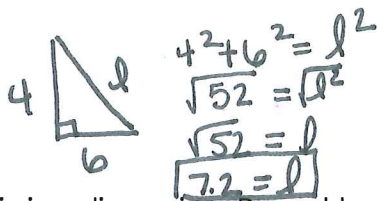 4
l
6
4² + 6² = l²
√52 = √l²
√52 = l
7.2 = l